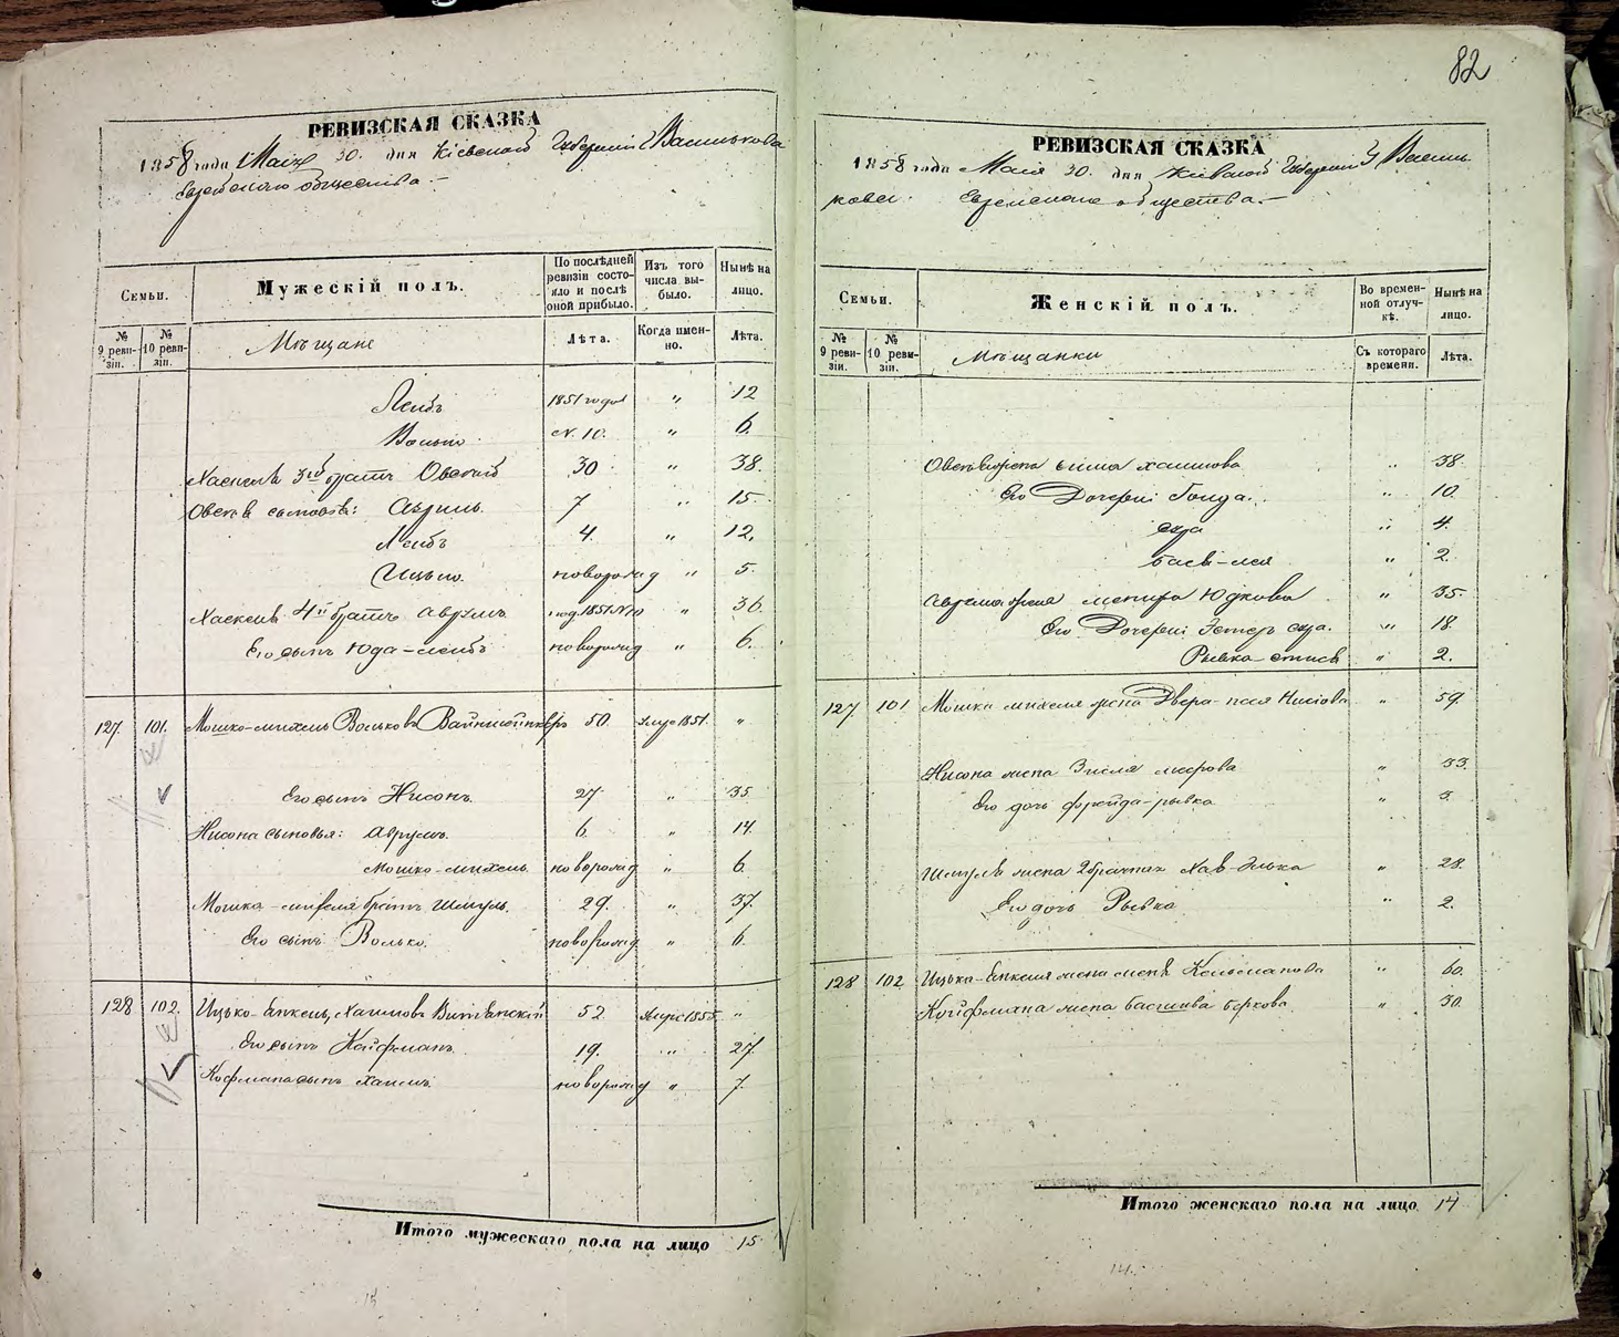 82
РЕВИЗСКАЯ СКАЗКА
1858 года Маія 30. дня Кіевской Губерніи г. Василькова
Еврейскаго общества.
Семьи.
Мужескій полъ.
По послѣдней ревизіи состояло и послѣ оной прибыло.
Изъ того числа выбыло.
Нынѣ на лицо.
№ 9 ревизіи.
№ 10 ревизіи.
Мѣщане
Лѣта.
Когда именно.
Лѣта.
Лейбъ 1851 года " 12
Волько № 10. " 6.
Хаскеля 3й братъ Овсей 30 " 38.
Овсея сыновья: Аврумъ 7 " 15.
Лейбъ 4. " 12.
Ицько. новорожд " 5.
Хаскеля 4й братъ Аврумъ 1851 №10 " 36
Его сынъ Юда-лейбъ новорожд " 6.
127. 101. Мошко-михель Вольковъ 50. умре 1851. "
Его сынъ Нисонъ. 27 " 35
Нисона сыновья: Аврумъ. 6 " 14.
Мошко-михель новорожд " 6.
Мошка-михеля братъ Шмуль. 29. " 37.
Его сынъ Волько. новорожд " 6.
128 102. Ицько-Янкель Хаимовъ 52 умре 1855 "
Его сынъ Кайфманъ 19. " 27.
Кофмана сынъ Хаимъ новорожд " 7.
Итого мужескаго пола на лицо 15
РЕВИЗСКАЯ СКАЗКА
1858 года Маія 30. дня Кіевской Губерніи г. Василькова Еврейскаго общества.
Семьи.
Женскій полъ.
Во временной отлучкѣ.
Нынѣ на лицо.
№ 9 ревизіи.
№ 10 ревизіи.
Мѣщанки
Съ котораго времени.
Лѣта.
Овсея жена Сима Хаимова " 38.
Его Дочери: Голда. " 10.
Сура " 4.
Бася-лея " 2.
Аврума жена Юдкова " 35.
Его Дочери: Эстеръ сура. " 18.
Рывка " 2.
127. 101 Мошка михеля жена Двера-песя Нисіова " 59.
Нисона жена Зисля меерова " 33.
Его дочь фрейда-рывка " 3.
Шмуля жена 2 брачная Хая-Элька " 28.
Его дочь Рывка " 2.
128 102 Ицька-Янкеля жена " 60.
Койфмана жена Басшива Беркова " 30.
Итого женскаго пола на лицо 14
14.